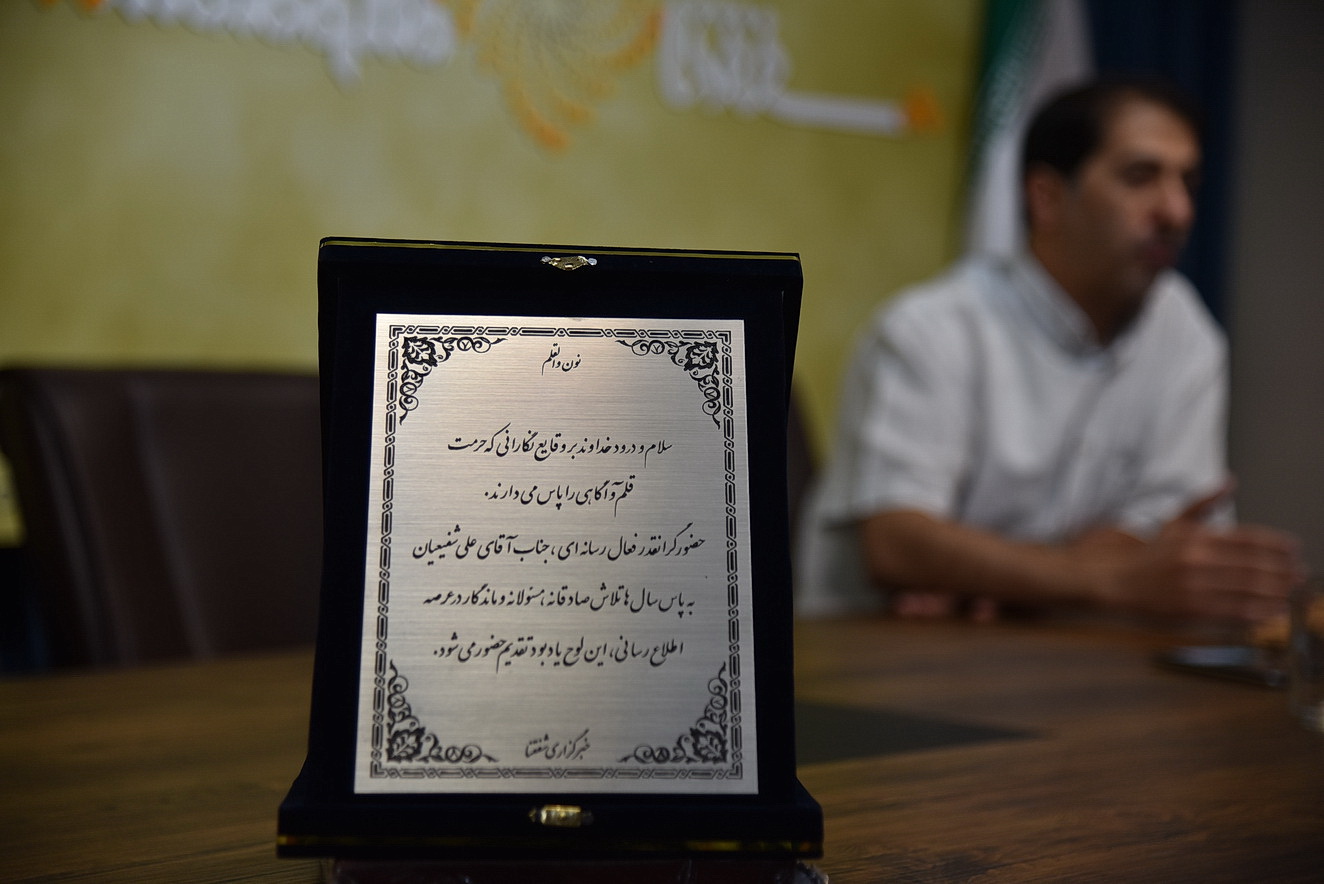 نون والقلم
سلام و درود خداوند بر وقایع نگارانی که حرمت
قلم و آگاهی را پاس می دارند.
حضور گرانقدر فعال رسانه ای، جناب آقای علی شفیعیان
به پاس سال ها تلاش صادقانه، مسئولانه و ماندگار در عرصه
اطلاع رسانی، این لوح یادبود تقدیم حضور می شود.
خبرگزاری شفقنا